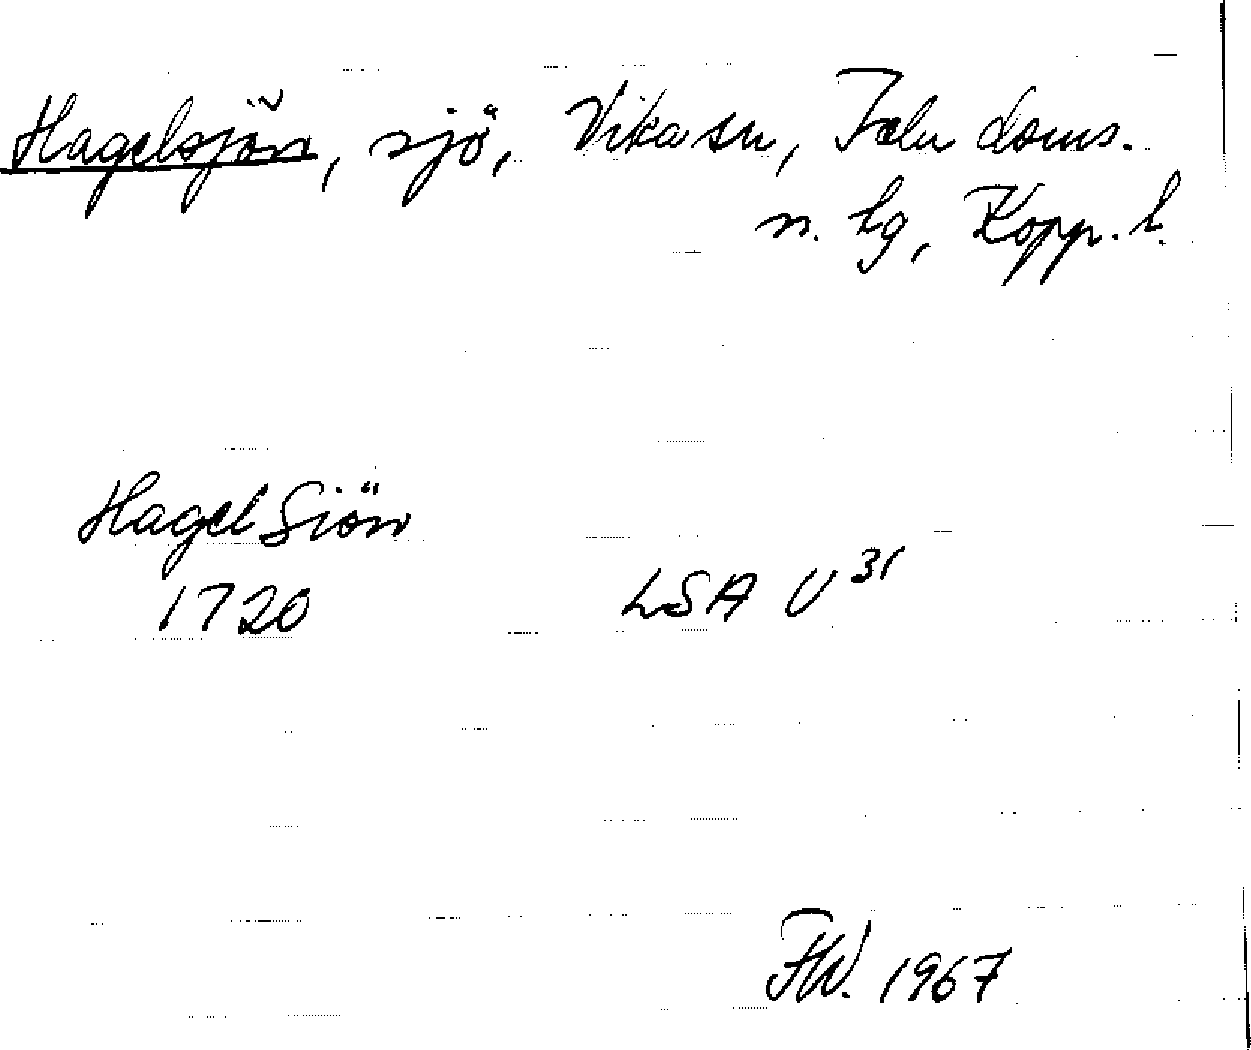 Hagelsjön, sjö, Vika sn, Falu doms.
n. tg, Kopp. l.
Hagel Siön
1720 LSA U 31
FW. 1967